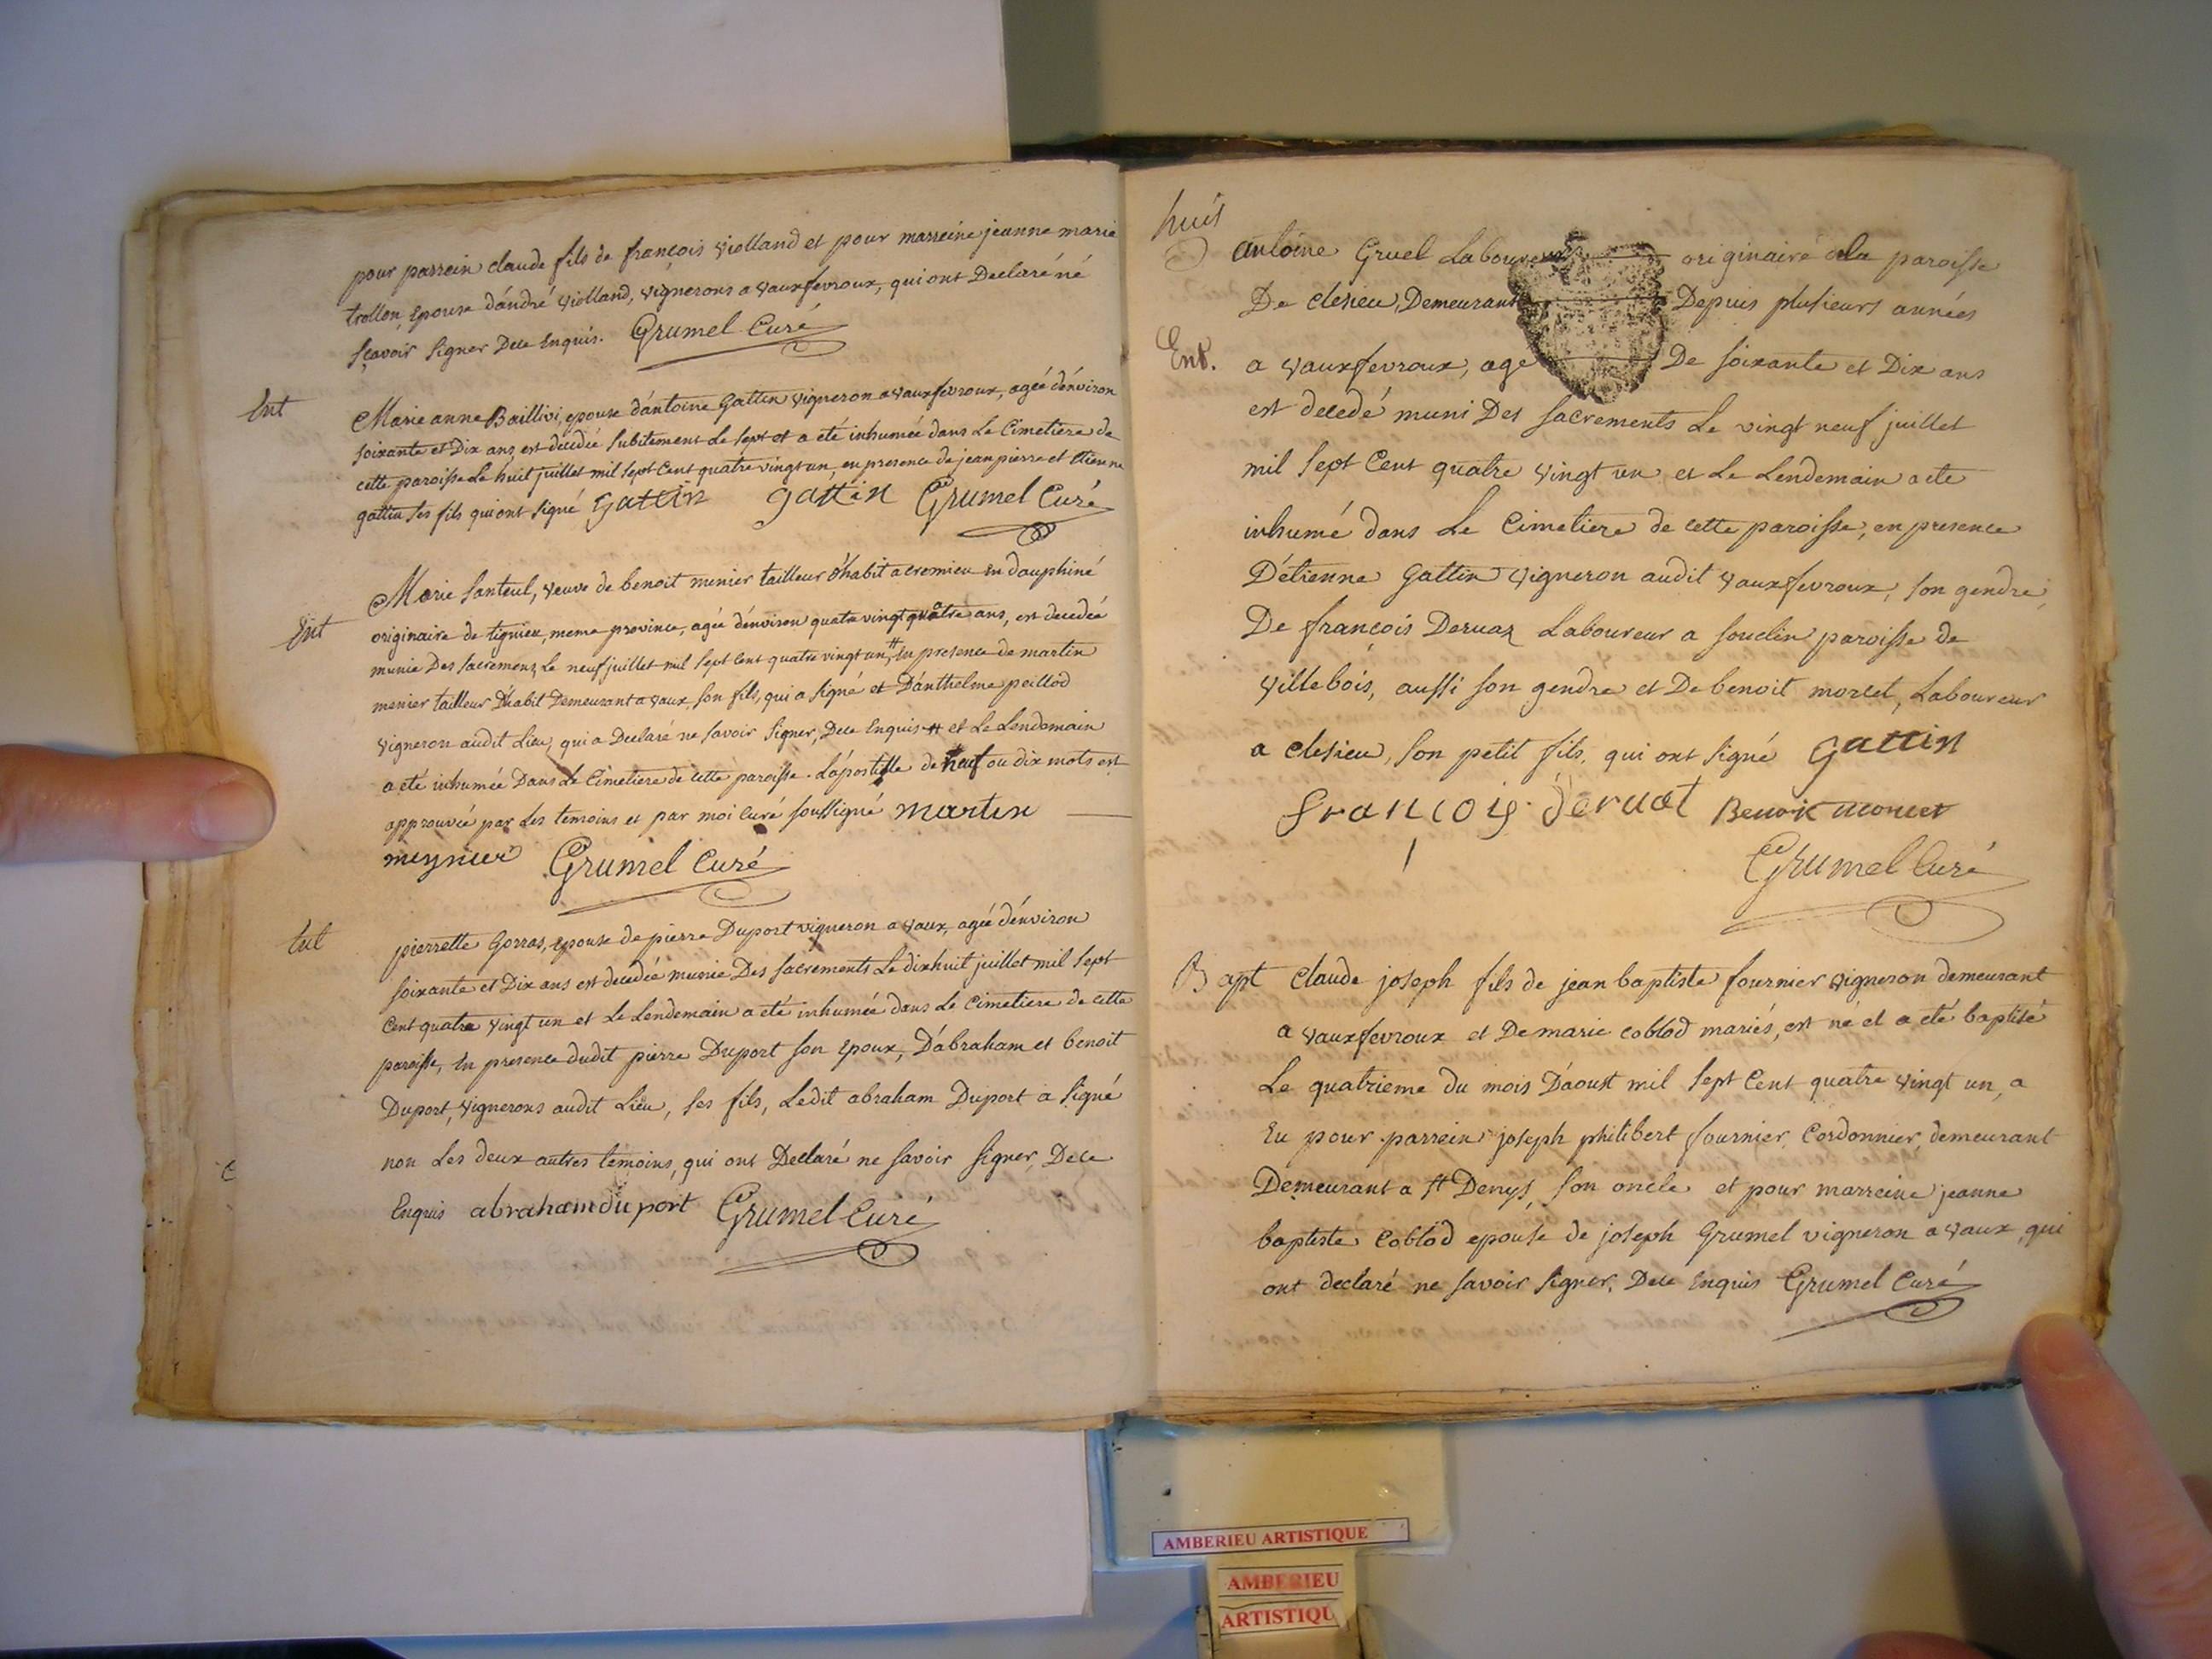 pour parrein claude fils de françois violland et pour marreine jeanne marie
trollon, Epouse d'andré violland, vignerons a vauxfevroux, qui ont Declaré né
sçavoir signer Dece Enquis. Grumel Curé
Ent
Marie anne Baillivi, epouse d'antoine Gattin vigneron a vauxfevroux, agée d'environ
soixante et Dix ans, est decedée subitement Le sept et a eté inhumée dans Le Cimetiere de
cette paroisse Le huit juillet mil sept Cent quatre vingt un, en presence de jean pierre et etienne
gattin ses fils qui ont signé Gattin gattin Grumel Curé
Ent
Marie santeul, veuve de benoit menier tailleur d'habit a cremieu en dauphiné
originaire de tignieu, meme province, agée d'environ quatre vingt quatre ans, est decedée
munie Des sacremens, Le neuf juillet mil sept Cent quatre vingt un # En presence de martin
menier tailleur D'habit Demeurant a vaux, son fils, qui a signé et D'anthelme peillod
vigneron audit Lieu, qui a Declaré ne savoir signer, Dece Enquis # et Le Lendemain
a eté inhumée Dans Le Cimetiere de cette paroisse. L'apostille de neuf ou dix mots est
approuvée par Les temoins et par moi curé soussigné martin
meynier Grumel Curé
Ent
pierrette Gorras, epouse de pierre Duport vigneron a vaux, agée d'environ
soixante et Dix ans est decedée munie Des sacrements Le dixhuit juillet mil sept
Cent quatre vingt un et Le Lendemain a eté inhumée dans Le Cimetiere de cette
paroisse, En presence dudit pierre Duport son Epoux, D'abraham et benoit
Duport, vignerons audit Lieu, ses fils, Ledit abraham Duport a signé
non Les deux autres temoins, qui ont Declaré ne savoir signer, Dece
Enquis abraham duport Grumel Curé
huit
antoine Gruel Laboureur originaire de la paroisse
De clesieu, Demeurant Depuis plusieurs années
Ent.
a vauxfevroux, agé De soixante et Dix ans
est decedé muni Des sacrements Le vingt neuf juillet
mil sept Cent quatre vingt un et Le Lendemain a ete
inhumé dans Le Cimetiere de cette paroisse, en presence
D'etienne Gattin vigneron audit vauxfevroux, son gendre,
De françois Dervaz Laboureur a souclin paroisse de
villebois, aussi son gendre et De benoit morcet, Laboureur
a clesieu, son petit fils, qui ont signé Gattin
francois dervat Benoit morcet
Grumel Curé
Bapt
Claude joseph fils de jean baptiste fournier vigneron demeurant
a vauxfevroux et De marie coblod mariés, est né et a eté baptisé
Le quatrieme du mois D'aoust mil sept Cent quatre vingt un, a
Eu pour parrein joseph philibert fournier, Cordonnier, demeurant
Demeurant a st Denys, son oncle et pour marreine jeanne
baptiste Coblod epouse de joseph Grumel vigneron a vaux, qui
ont declaré ne savoir signer, Dece Enquis Grumel Curé
AMBERIEU ARTISTIQUE
AMBERIEU
ARTISTIQU